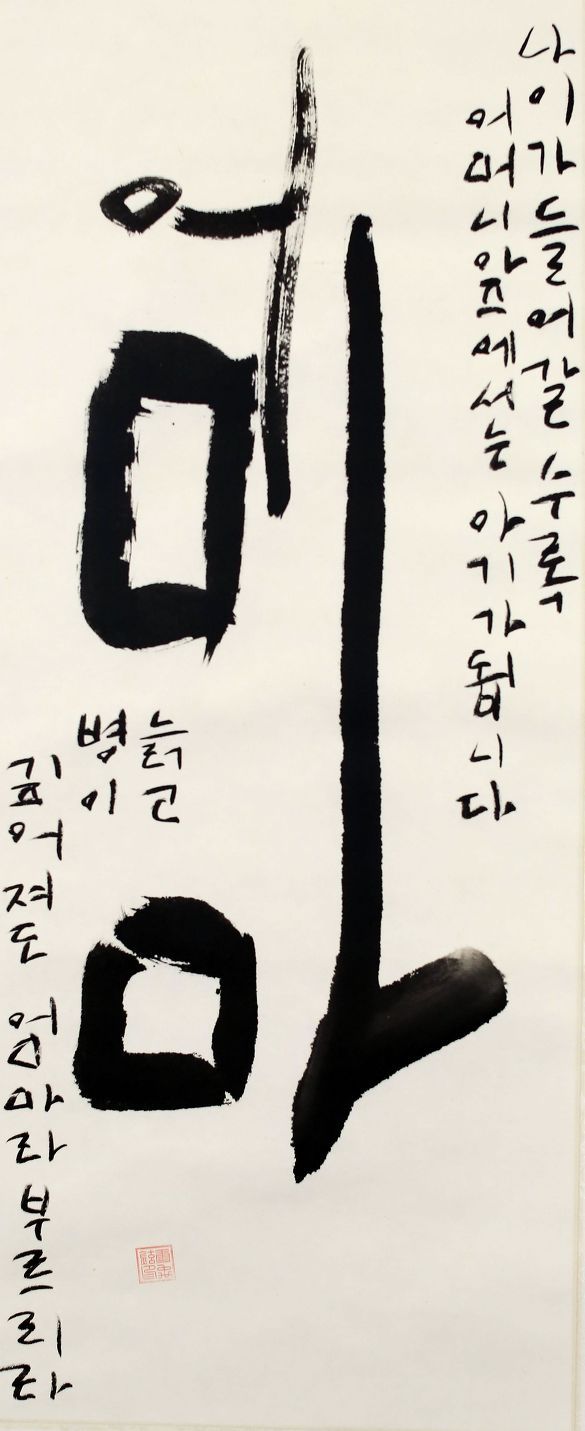 나이가 들어갈 수록
어머니 앞에서는 아기가 됩니다
엄마
늙고
병이
깊어져도 엄마라 부르리라